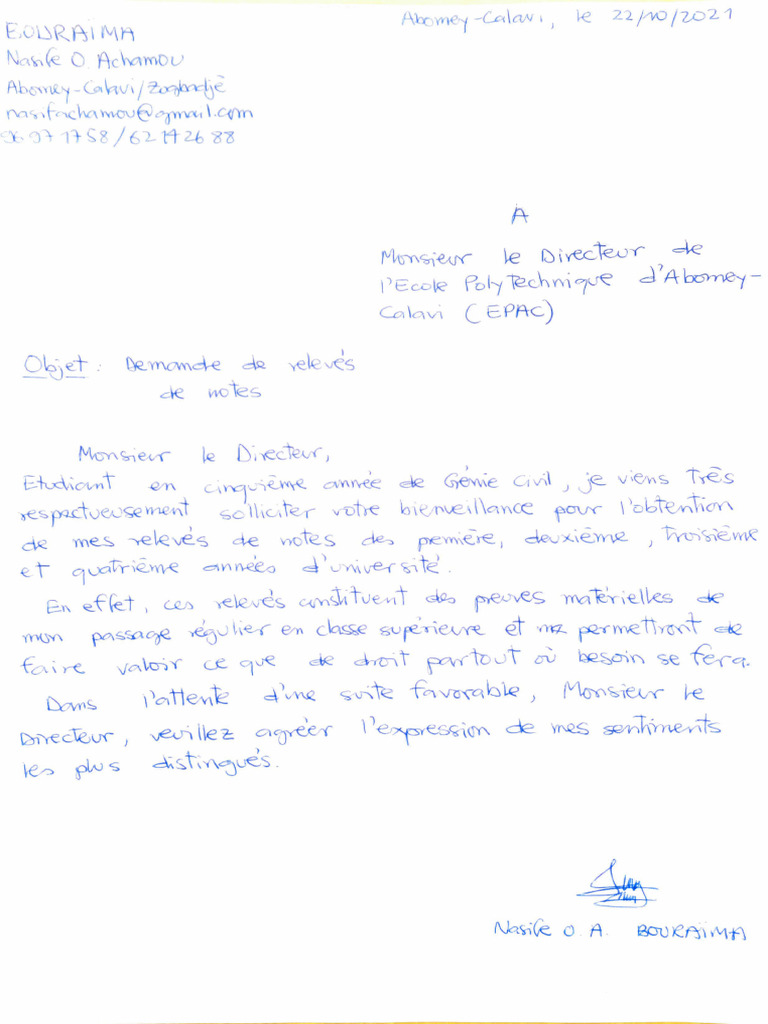 BOURAÏMA
Abomey-Calavi, le 22/10/2021
Nasife O. Achamou
Abomey-Calavi/Zogbadjè
nasifachamou@gmail.com
97 17 58 / 62 14 26 88
A
Monsieur le Directeur de
l'Ecole Polytechnique d'Abomey-
Calavi (EPAC)
Objet : Demande de relevés
de notes
Monsieur le Directeur,
Etudiant en cinquième année de Génie Civil, je viens très
respectueusement solliciter votre bienveillance pour l'obtention
de mes relevés de notes des première, deuxième, troisième
et quatrième années d'université.
En effet, ces relevés constituent des preuves matérielles de
mon passage régulier en classe supérieure et me permettront de
faire valoir ce que de droit partout où besoin se fera.
Dans l'attente d'une suite favorable, Monsieur le
Directeur, veuillez agréer l'expression de mes sentiments
les plus distingués.
Nasife O. A. BOURAÏMA